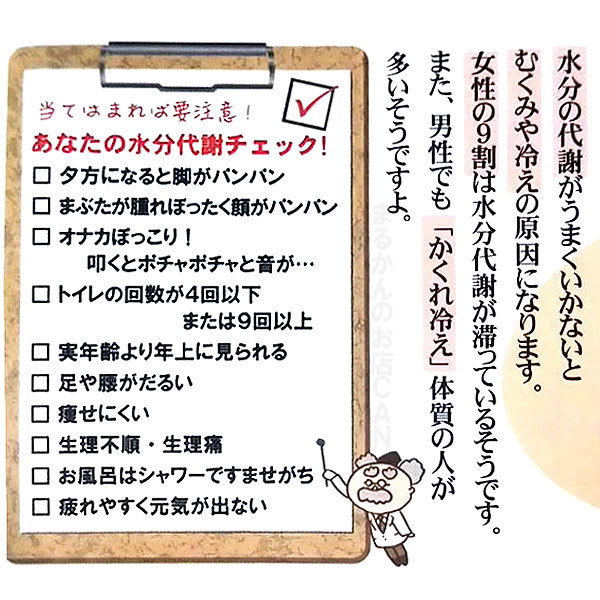 水分の代謝がうまくいかないと
むくみや冷えの原因になります。
女性の9割は水分代謝が滞っているそうです。
また、男性でも「かくれ冷え」体質の人が
多いそうですよ。
当てはまれば要注意！
あなたの水分代謝チェック！
□ 夕方になると脚がパンパン
□ まぶたが腫れぼったく顔がパンパン
□ オナカぽっこり！
叩くとポチャポチャと音が…
□ トイレの回数が4回以下
または9回以上
□ 実年齢より年上に見られる
□ 足や腰がだるい
□ 痩せにくい
□ 生理不順・生理痛
□ お風呂はシャワーですませがち
□ 疲れやすく元気が出ない
まるかんのお店CAN